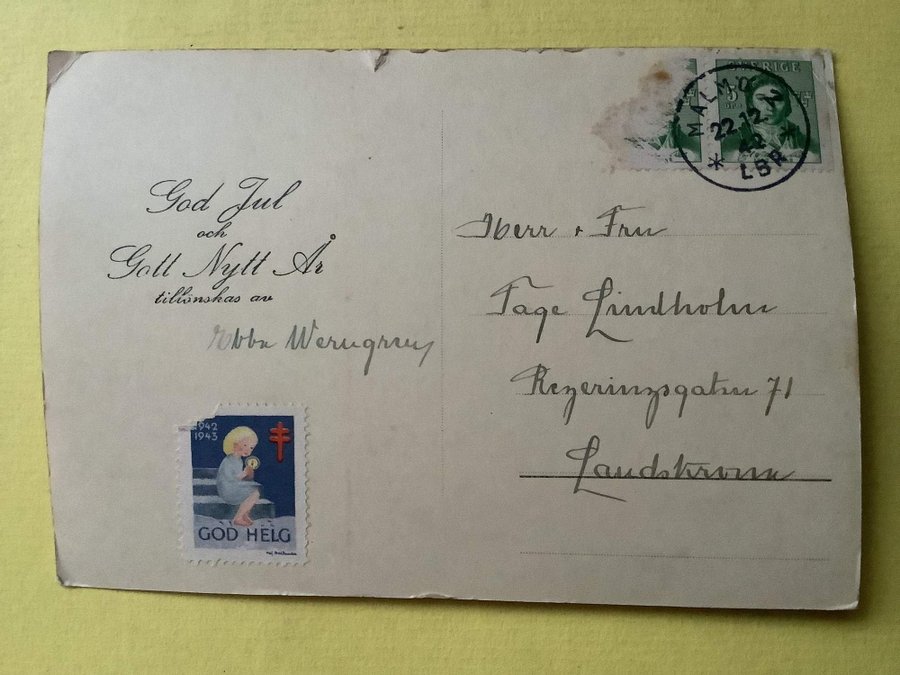 God Jul
och
Gott Nytt År
tillönskas av
Ebba
1942
1943
GOD HELG
SVERIGE
5
MALMÖ
22.12.
42
LBR
Herr + Fru
Tage Lindholm
Regeringsgatan 71
Landskrona